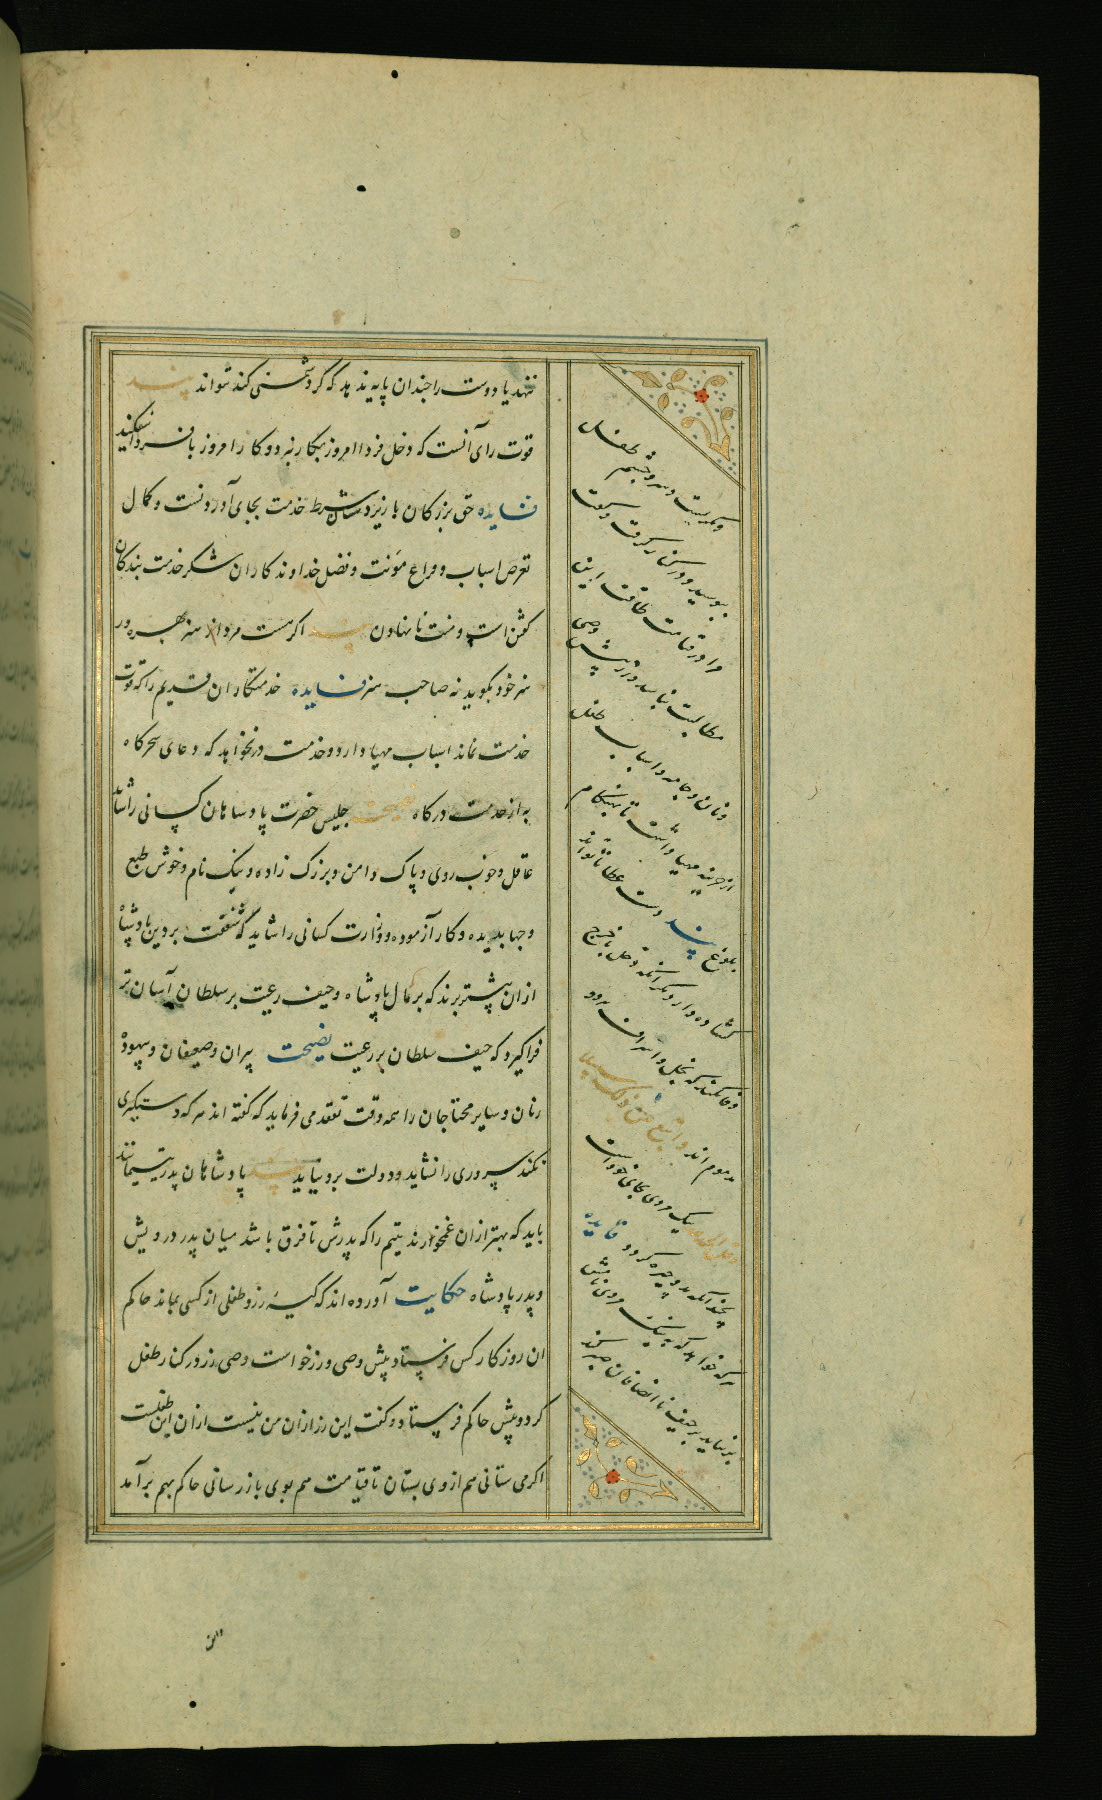 ننهد یا دوست را چندان پایه بدهد که گر دشمنی کند تواند پند
قوت رای آنست که دخل فردا امروز بکار نبرد و کار امروز با فردا نیفکند
فایده حق بزرگان بر زیردستان شرط خدمت بجای آوردنست و کمال
تعرض اسباب و فراغ مؤنت و فضل خداوندکاران شکر خدمت بندکان
کفتن است و منت نا نهادن پند اکر هست مرد از هنر بهره ور
هنر خود بکوید نه صاحب هنر فایده خدمتکاران قدیم را که قوت
خدمت نماند اسباب مهیا دارد و خدمت درنخواهد که دعای سحرکاه
به از خدمت درکاه نصیحت جلیس حضرت پادشاهان کسانی را شاید
عاقل و خوب روی و پاک دامن و بزرک زاده و نیک نام و خوش طبع
و جهاندیده و کار آزموده و وزارت کسانی را شاید که شفقت بر دین پادشاه
از ان بیشتر برند که بر مال پادشاه و حیف رعیت بر سلطان آسان تر
فرا گیرد که حیف سلطان بر رعیت نصیحت پیران و ضعیفان و بیوه
زنان و سایر محتاجان را همه وقت تفقد می فرماید که گفته اند هر که دستکیری
نکند سروری را نشاید و دولت برو نپاید پند پادشاهان پدر یتیمانند
باید که بهتر از ان غمخوارند یتیم را که پدرش تا فرق باشد میان پدر درویش
و پدر پادشاه حکایت آورده اند که کیسه زر و طفلی از کسی بماند حاکم
ان روزکار کس فرستاد پیش وصی و زر خواست وصی زر در کنار طفل
کرد و پیش حاکم فرستاد و گفت این زر از ان من نیست از ان این طفلست
اکر می ستانی هم از وی بستان تا قیامت هم بوی باز رسانی حاکم بهم برآمد
و بگریست و سر و چشم طفل
ببوسید و در کنار گرفت و گفت
مرا در قیامت طاقت این
مطالبت نباشد و زر پیش وصی
و نان و جامه و اسباب طفل
از خزینه مهیا داشت تا بهنگام
بلوغ پند دست عطا تا تواند
گشاده دارد مگر آنکه دخل با خرج
وفا نکند که بخل و اسراف هر دو
مذموم اند و ابتغ بین ذلک سبیلا
نیک مردی بجای خود است
نچندانکه بد چیره گردد فایده
هر که خواهد که به نیک مردی نامش
برنیاید بر حیف ناانصافان صبر کند